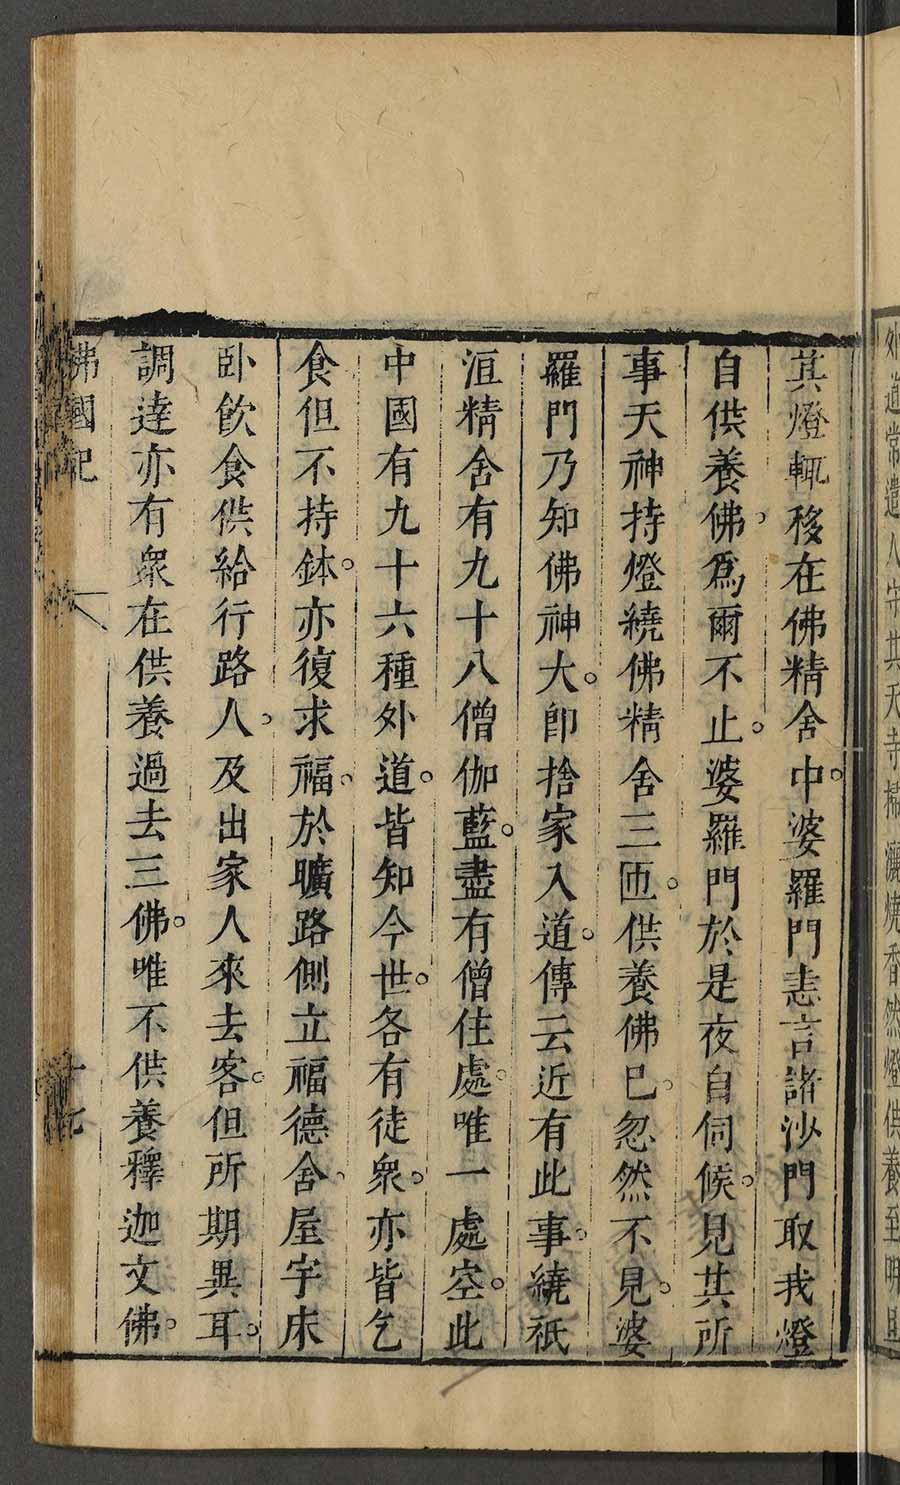 外道常遣人守其天寺掃灑燒香然燈供養至明旦
其燈輒移在佛精舍中。婆羅門恚言諸沙門取我燈
自供養佛、爲爾不止。婆羅門於是夜自伺候。見其所
事天神持燈繞佛精舍三匝。供養佛已。忽然不見。婆
羅門乃知佛神大。即捨家入道。傳云近有此事。繞祇
洹精舍有九十八僧伽藍。盡有僧住處。唯一處空。此
中國有九十六種外道。皆知今世。各有徒衆。亦皆乞
食但不持鉢。亦復求福、於曠路側立福德舍、屋宇床
卧飲食供給行路人、及出家人來去客。但所期異耳。
調達亦有衆在供養過去三佛。唯不供養釋迦文佛。
佛國記 十七